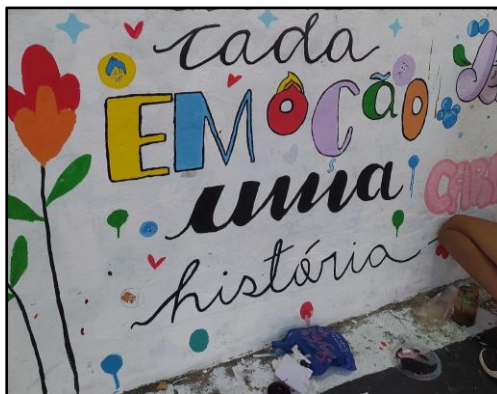 cada
EMOÇÃO
uma
história